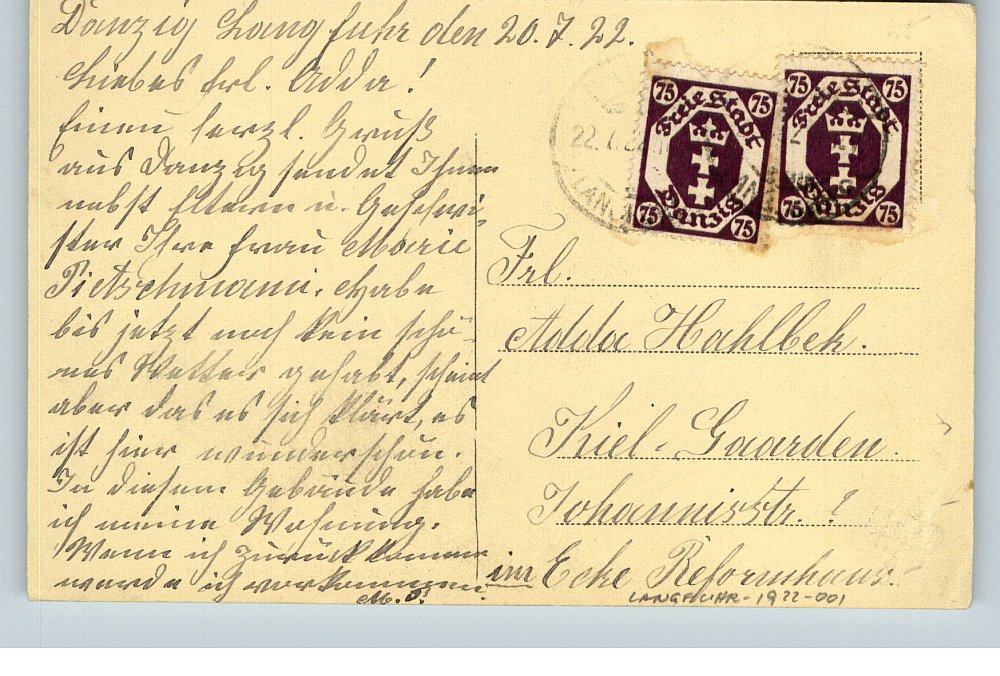 Danzig Langfuhr den 20.7.22.
Liebes Frl. Adda!
Einen herzl. Gruß
aus Danzig sendet Ihnen
nebst Eltern u. Geschwi-
ster Ihre Frau Marie
Pietschmann. Habe
bis jetzt noch kein schö-
nes Wetter gehabt, scheint
aber das es sich klärt, es
ist hier wunderschön.
In diesem Gebäude habe
ich meine Wohnung.
Wenn ich zurück komme
werde ich vorkommen.
M. P.
75 75
Freie Stadt
Danzig
75 75
75 75
Freie Stadt
Danzig
75 75
22. 7. 22
Frl.
Adda Hahlbek.
Kiel-Gaarden.
Johannisstr. ?
im Ecke Reformhaus.
LANGFUHR-1922-001